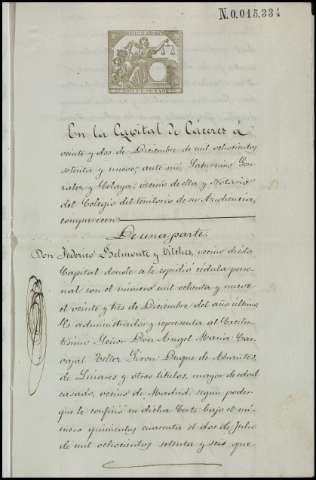 N.0.015,334
En la Capital de Cáceres á
veinte y dos de Diciembre de mil ochocientos
setenta y nueve, ante mi, Saturnino Gon
zalez y Celaya, vecino de ella y Notario
del Colegio del territorio de su Audiencia,
comparecen
De una parte
Don Federico Belmonte y Vilches, vecino de esta
Capital donde se le expidió cédula perso
nal con el número mil ochenta y nueve
el veinte y tres de Diciembre del año último
Es administrador y representa al Excelen
tísimo Señor Don Angel María Car
vajal Tellez Giron Duque de Abrantes,
de Linares y otros títulos, mayor de edad
casado, vecino de Madrid, según poder
que le confirió en dicha Corte bajo el nú
mero quinientos cuarenta el dos de Julio
de mil ochocientos setenta y seis que